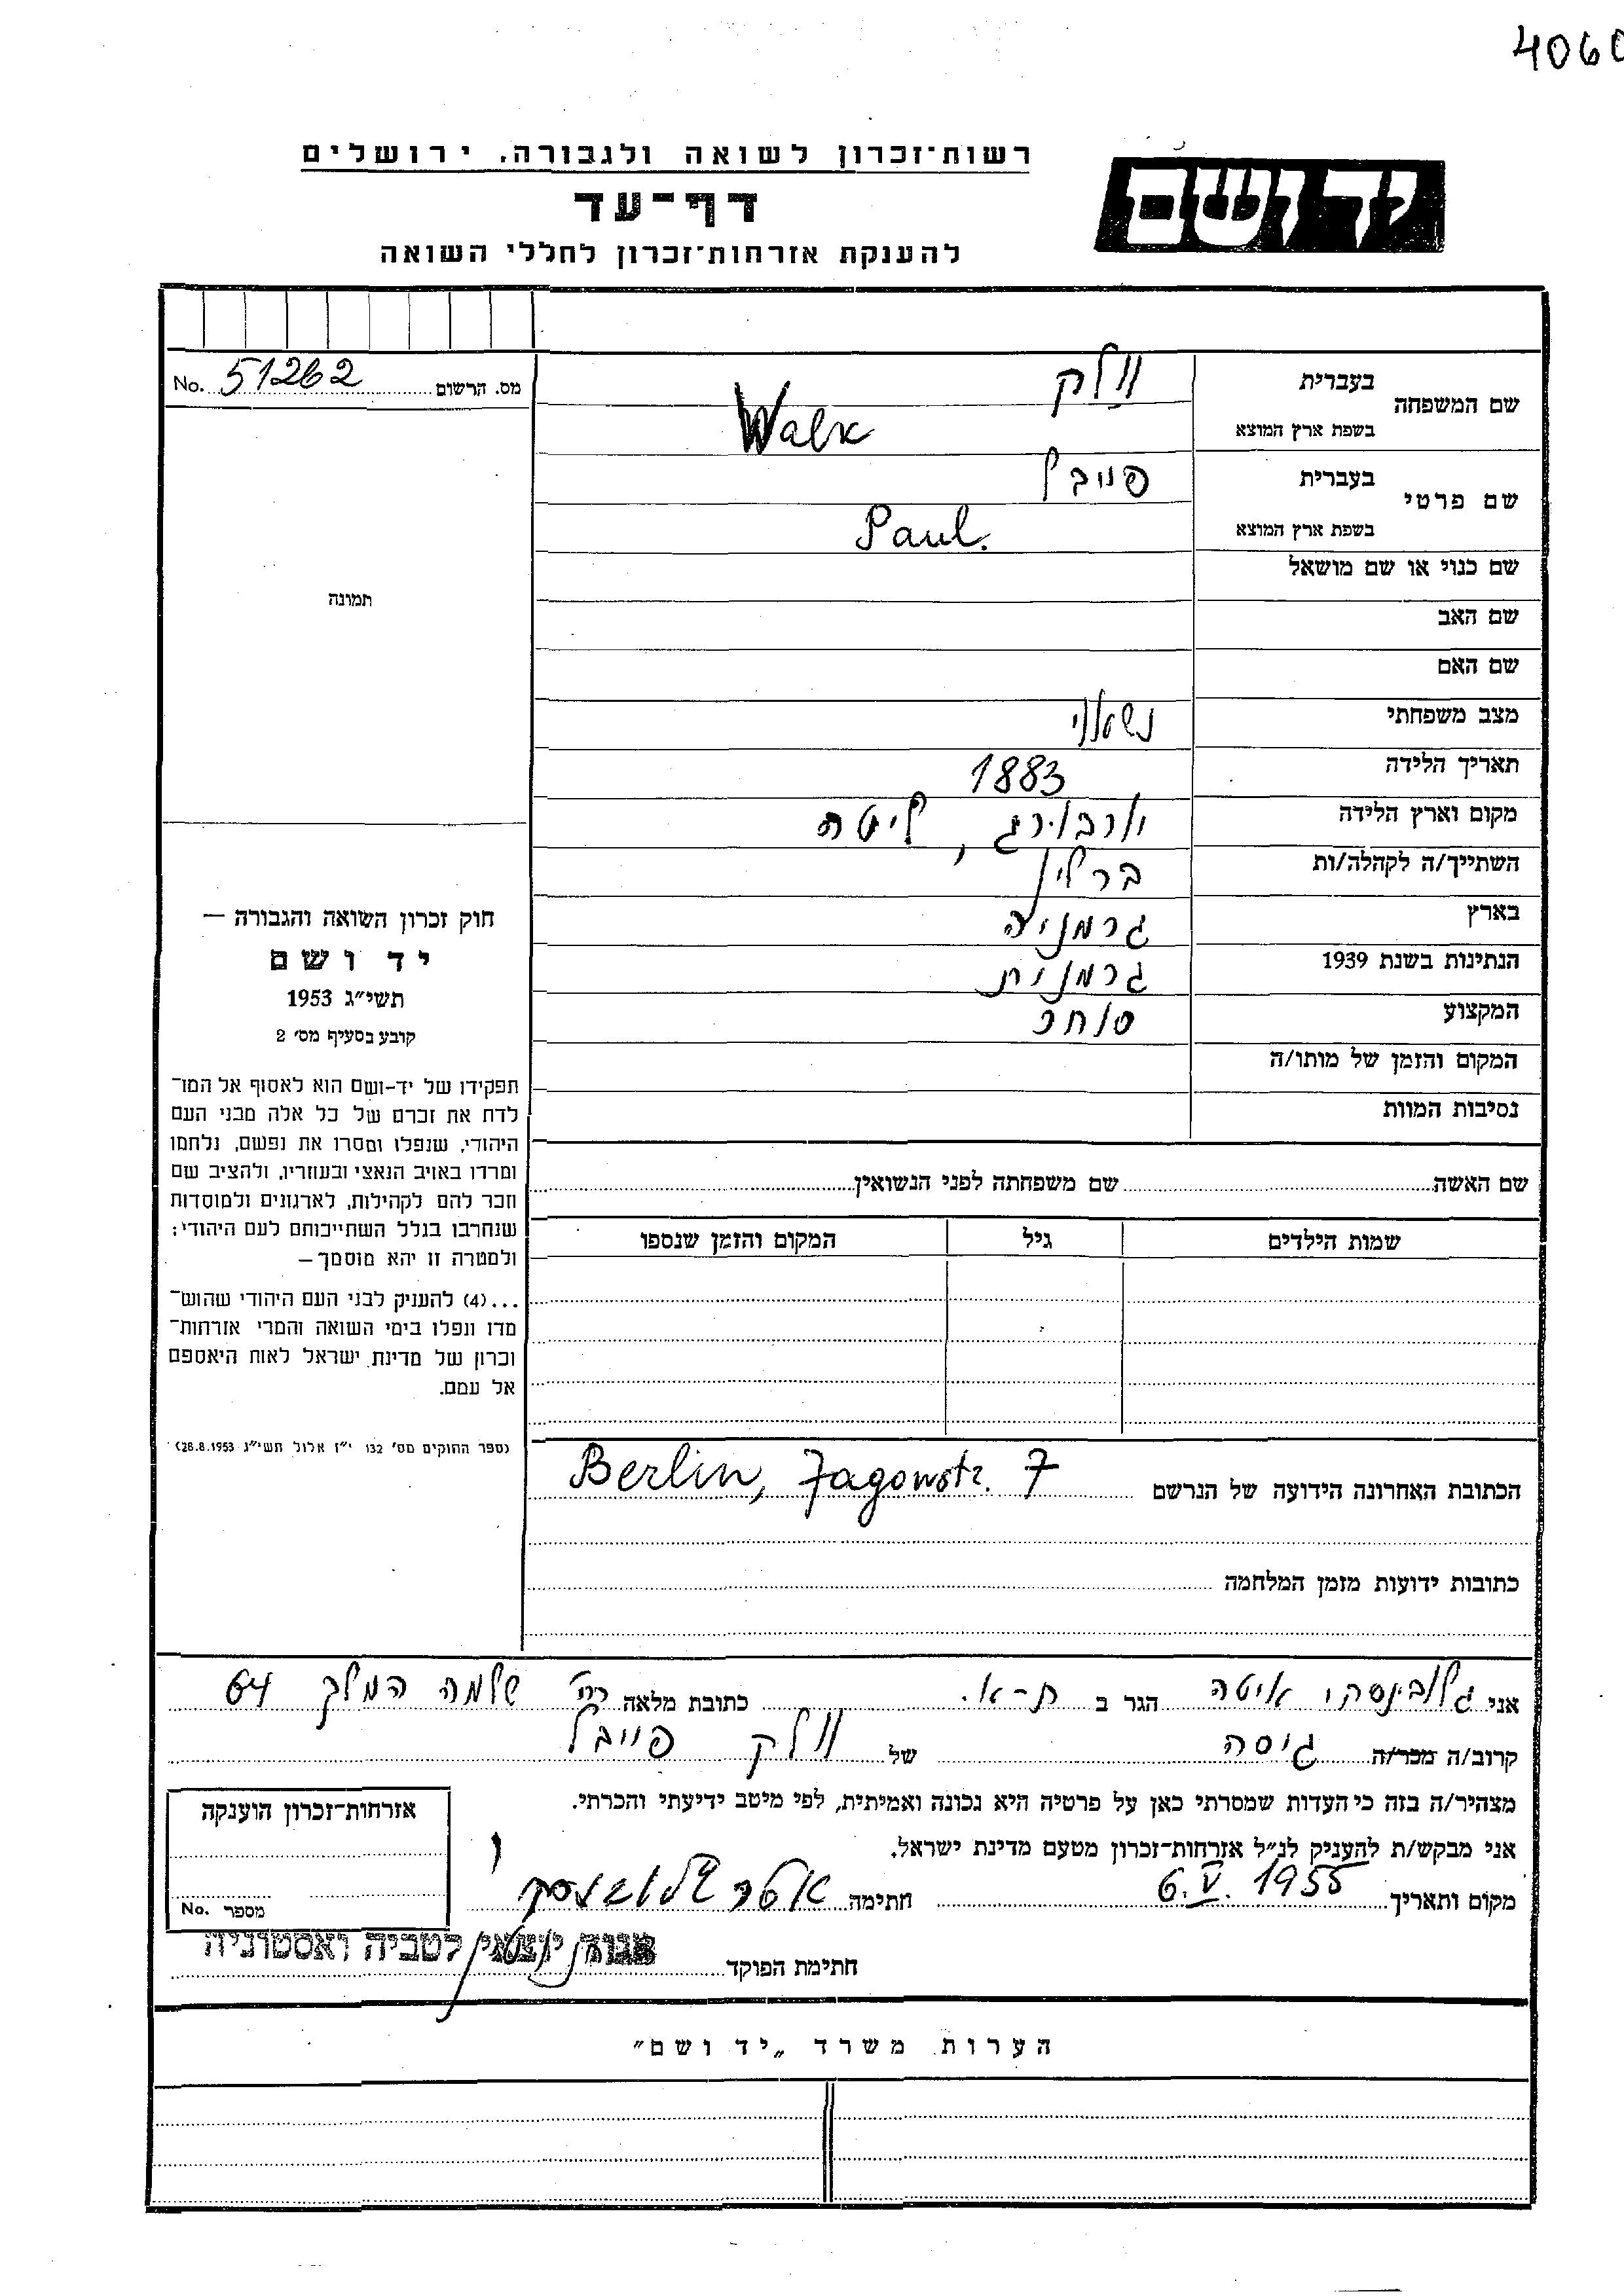 4060
רשות־זכרון לשואה ולגבורה, ירושלים
יד ושם
דף־עד
להענקת אזרחות־זכרון לחללי השואה
מס. הרשום 51262 No.
שם המשפחה
בעברית
וולק
בשפת ארץ המוצא
Walk
שם פרטי
בעברית
פייבל
בשפת ארץ המוצא
Paul.
שם כנוי או שם מושאל
שם האב
שם האם
מצב משפחתי נשאוי
תאריך הלידה 1883
מקום וארץ הלידה יורבורג, ליטה
השתייך/ה לקהלה/ות ברלין
בארץ גרמניה
הנתינות בשנת 1939 גרמנית
המקצוע סוחר
המקום והזמן של מותו/ה
נסיבות המוות
תמונה
חוק זכרון השואה והגבורה —
יד ושם
תשי״ג 1953
קובע בסעיף מס׳ 2
תפקידו של יד-ושם הוא לאסוף אל המו־
לדת את זכרם של כל אלה מבני העם
היהודי, שנפלו ומסרו את נפשם, נלחמו
ומרדו באויב הנאצי ובעוזריו, ולהציב שם
וזכר להם לקהילות, לארגונים ולמוסדות
שנחרבו בגלל השתייכותם לעם היהודי;
ולמטרה זו יהא מוסמך —
...(4) להעניק לבני העם היהודי שהוש־
מדו ונפלו בימי השואה והמרי אזרחות־
זכרון של מדינת ישראל לאות היאספם
אל עמם.
(ספר החוקים מס׳ 132 י״ז אלול תשי״ג 28.8.1953)
שם האשה שם משפחתה לפני הנשואין
שמות הילדים גיל המקום והזמן שנספו
הכתובת האחרונה הידועה של הנרשם Berlin, Jagowstr. 7
כתובות ידועות מזמן המלחמה
אני גלובינסקי איטה הגר ב ת-א. כתובת מלאה רח׳ שלמה המלך 64
קרוב/ה מכר/ה גיסה של וולק פייבל
מצהיר/ה בזה כי העדות שמסרתי כאן על פרטיה היא נכונה ואמיתית, לפי מיטב ידיעתי והכרתי.
אני מבקש/ת להעניק לנ״ל אזרחות־זכרון מטעם מדינת ישראל.
מקום ותאריך 6.V.1955 חתימה
אזרחות־זכרון הוענקה
מספר No.
חתימת הפוקד
אגוד יוצאי לטביה ואסטוניה
הערות משרד „יד ושם״